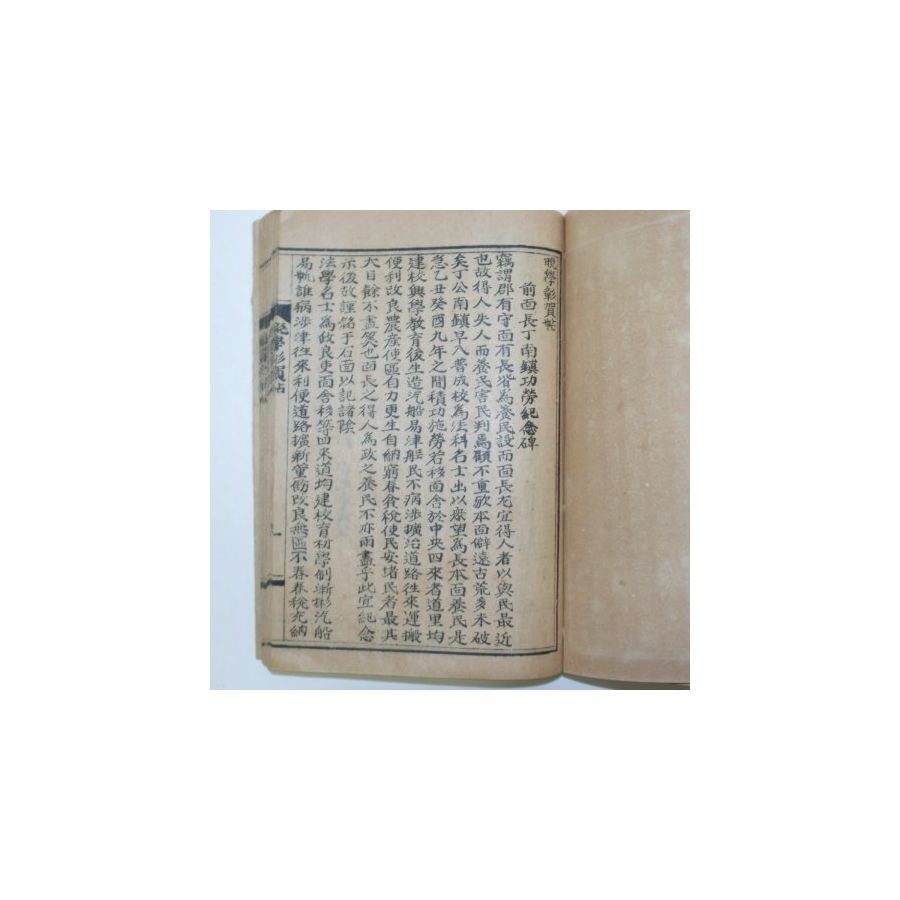 晩學彰賀帖
前面長丁南鎮功勞紀念碑
竊謂郡有守面有長皆爲養民設而面長尤宜得人者以與民最近
也故得人失人而養民害民判焉顧不重歟本面僻遠古荒多未破
矣丁公南鎮早入普成校爲法科名士出以衆望爲長本面養民是
急乙丑癸酉九年之間積功施勞若移面舍於中央四來者道里均
建校興學教育後生造汽船易津艇民不病涉擴治道路往來運搬
便利改良農産使區自力更生自納窮春食稅使民安堵民者最其
大目餘不盡筴也面長之得人爲政之養民不亦兩盡乎此宜紀念
示後故謹銘于石面以記諸陰
法學名士爲政良吏面舍移等四來道均建校育材學制漸彬汽船
易艇誰病涉津往來利便道路擴新董飭改良無區不春春稅充納
晩學彰賀帖
一